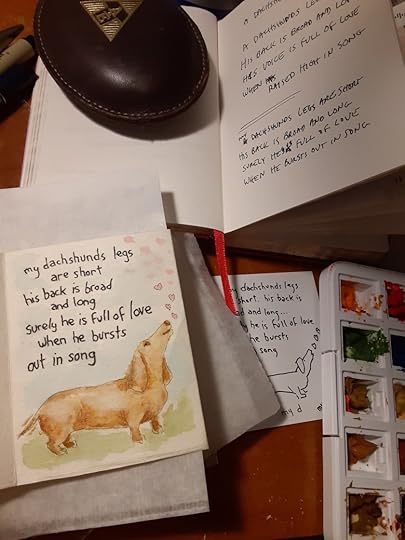 A DACHSHUNDS LEGS
A DACHSHUNDS LEGS
HIS BACK IS BROAD AND LO
HIS VOICE IS FULL OF LOVE
WHEN RAISED HIGH IN SONG
DACHSHUNDS LEGS ARE SHORT
HIS BACK IS BROAD AND LONG
SURELY HE IS FULL OF LOVE
WHEN HE BURSTS OUT IN SONG
my dachshunds legs
are short
his back is broad
and long
surely he is full of love
when he bursts
out in song
my dachshunds legs
short. his back is
ad and long...
y he is full of love
he bursts
song
my d